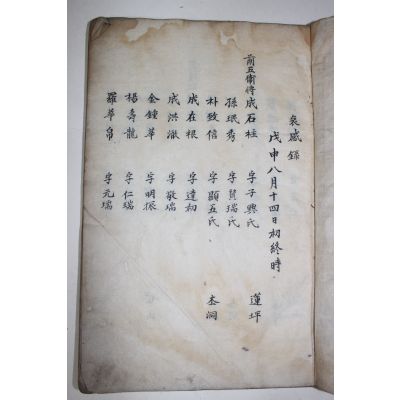 哀感錄
戊申八月十四日初終時
前五衛將成石柱 字子興氏 蓮坪
孫珉秀 字賢瑞氏
朴致信 字顯五氏 本洞
成在根 字達初
成洪澈 字敬瑞
金鍾華 字明振
楊壽龍 字仁瑞
羅華帛 字元瑞